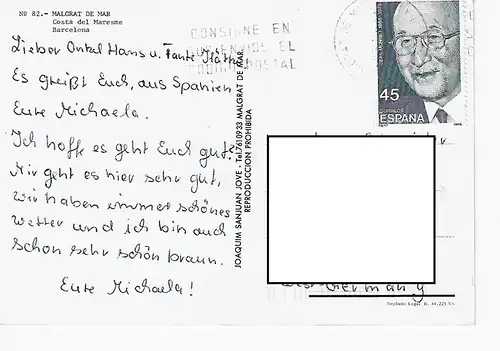 Nº 82.- MALGRAT DE MAR
Costa del Maresme
Barcelona
CONSIGNE EN
EL
POSTAL
45
CORREOS
ESPAÑA
Lieber Onkel Hans u. Tante Käthe
Es grüßt Euch, aus Spanien
Eure Michaela.
Ich hoffe es geht Euch gut.
Mir geht es hier sehr gut,
wir haben immer schönes
Wetter und ich bin auch
schon sehr schön braun.
Eure Michaela!
JOAQUIM SANJUAN JOVE - Tel. 7610933 MALGRAT DE MAR
REPRODUCCION PROHIBIDA
Germany